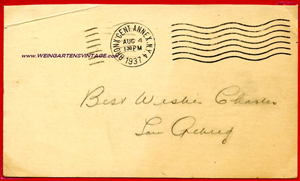 BRONX CENT. ANNEX, N.Y. 4
AUG 4
1 30 PM
1937
www.WEINGARTENSVINTAGE.com
Best Wishes Charles
Lou Gehrig